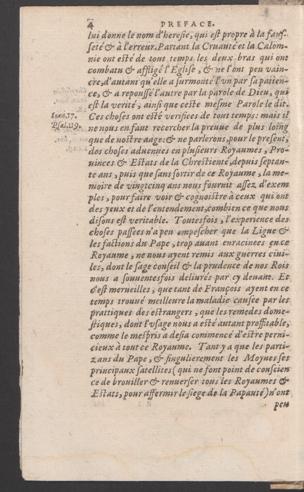 4 PREFACE.
lui donne le nom d'heresie, qui est propre à la faus-
seté & à l'erreur. Partant la Cruauté et la Calom-
nie ont esté de tout temps les deux bras qui ont
combatu & affligé l'Eglise, & ne l'ont peu vain-
cre, d'autant qu'elle a surmonté l'un par sa patien-
ce, & a repoussé l'autre par la parole de Dieu, qui
est la verité, ainsi que ceste mesme Parole le dit.
Ioan.17.
Psal.119.
Ces choses ont esté verifiees de tout temps: mais il
ne nous en faut recercher la preuve de plus loing
que de nostre aage: & ne parlerons, pour le present,
des choses aduenues en plusieurs Royaumes, Pro-
uinces & Estats de la Chrestienté, depuis septan-
te ans, puis que sans sortir de ce Royaume, la me-
moire de vingtcinq ans nous fournit assez d'exem
ples, pour faire voir & cognoistre à ceux qui ont
des yeux et de l'entendement, combien ce que nous
disons est veritable. Toutesfois, l'experience des
choses passees n'a peu empescher que la Ligue &
les factions du Pape, trop auant enracinees en ce
Royaume, ne nous ayent remis aux guerres ciui-
les, dont le sage conseil & la prudence de nos Rois
nous a souuentesfois deliurés par cy deuant. Et
c'est merueilles, que tant de François ayent en ce
temps trouué meilleure la maladie causee par les
prattiques des estrangers, que les remedes dome-
stiques, dont l'vsage nous a esté autant proffitable,
comme le mespris a desia commencé d'estre perni-
cieux à tout ce Royaume. Tant y a que les parti-
zans du Pape, & singulierement les Moynes ses
principaux satellites (qui ne font point de conscien
ce de brouiller & renuerser tous les Royaumes &
Estats, pour affermir le siege de la Papauté) n'ont
peu